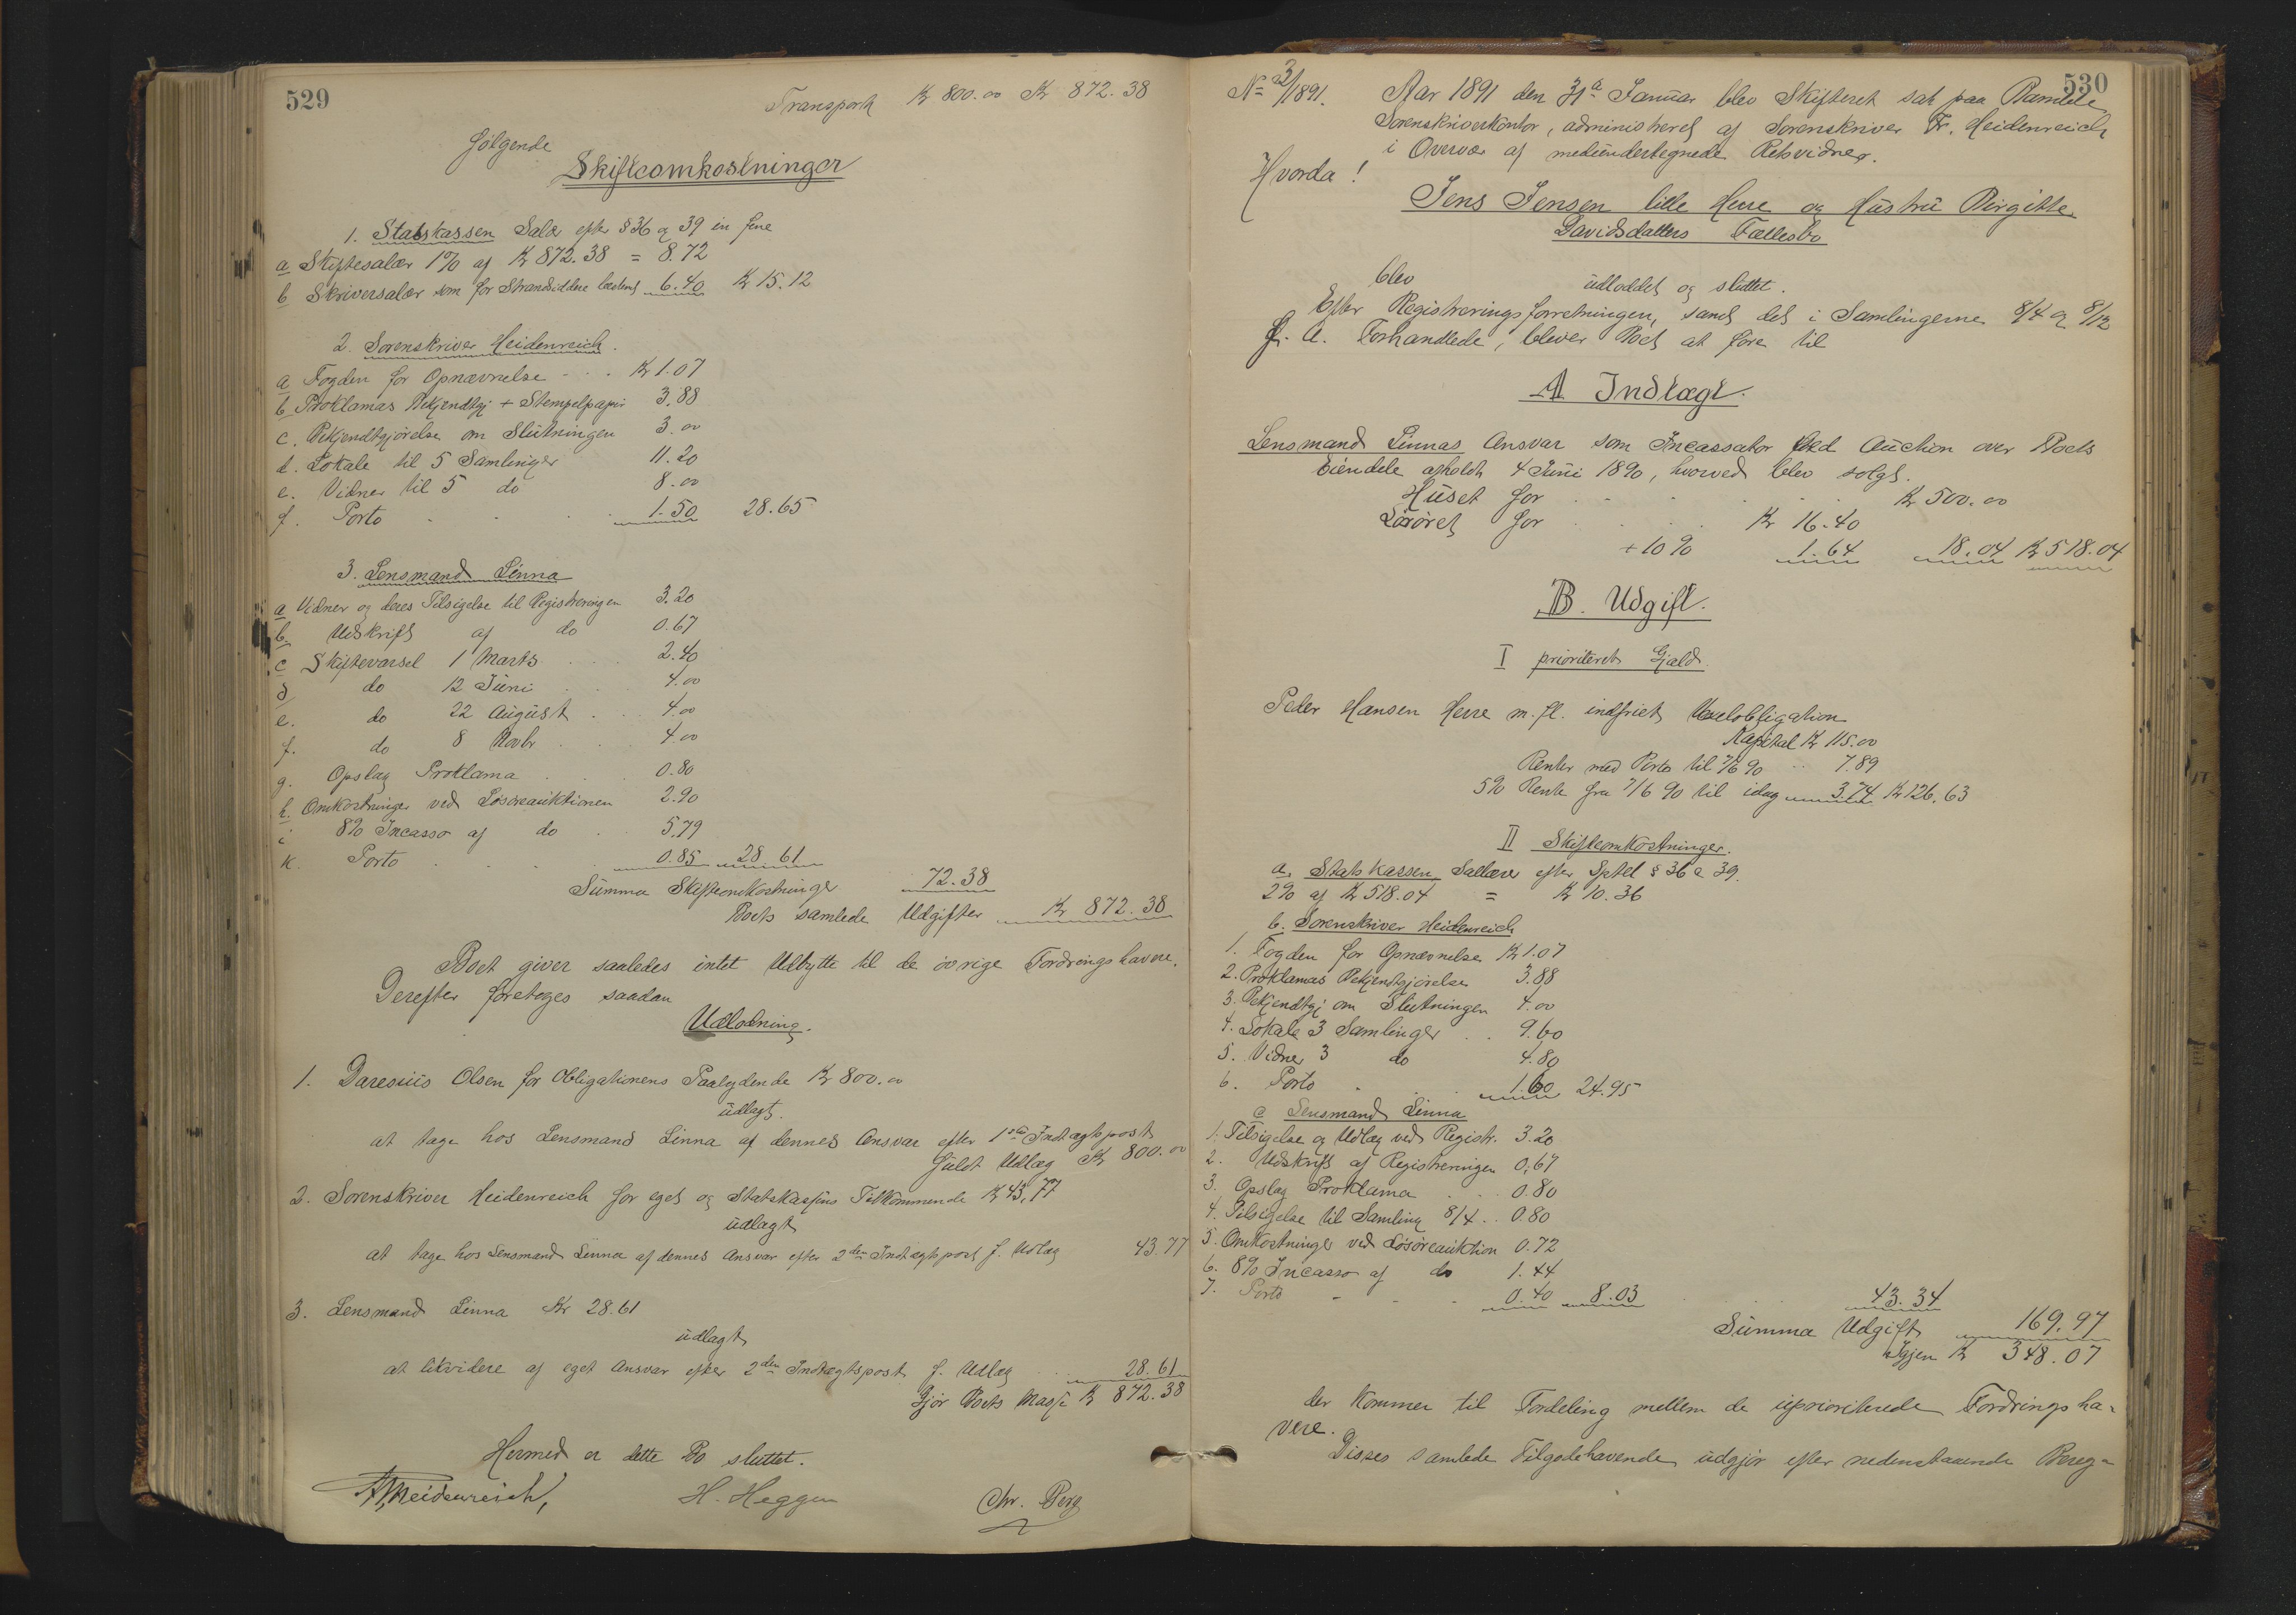 529
Transport Kr 800.00 Kr 872.38
følgende
Skifteomkostninger
1. Statskassen Salær efter § 36 og 39 in fine
a Skiftesalær 1% af Kr 872.38 = 8.72
b Skriversalær som for Strandsiddere bestemt 6.40 Kr 15.12
2. Sorenskriver Heidenreich.
a Fogden for Opnævnelse Kr 1.07
b Proklamas Bekjendtgj + Stempelpapir 3.88
c. Bekjendtgjörelse om Slutningen 3.00
d. Lokale til 5 Samlinger 11.20
e. Vidner til 5 do 8.00
f. Porto 1.50 28.65
3. Lensmand Linna
a Vidner og deres Tilsigelse til Registreringen 3.20
b. Udskrift af do 0.67
c Skiftevarsel 1 Marts 2.40
d do 12 Juni 4.00
e. do 22 August 4.00
f. do 8 Novbr 4.00
g. Opslag Proklama 0.80
h. Omkostninger ved Lösöreauktionen 2.90
i 8% Incasso af do 5.79
k. Porto 0.85 28.61
Summa Skifteomkostninger 72.38
Boets samlede Udgifter Kr 872.38
Boet giver saaledes intet Udbytte til de övrige Fordringshavere.
Derefter foretoges saadan
Udlodning.
1. Daresius Olsen for Obligationens Paalydende Kr 800.00
udlagt.
at tage hos Lensmand Linna af dennes Ansvar efter 1ste Indtægtspost
fuldt Udlæg Kr 800.00
2. Sorenskriver Heidenreich for eget og Statskassens Tilkommende Kr 43,77
udlagt
at tage hos Lensmand Linna af dennes Ansvar efter 2den Indtægtspost f. Udlæg 43.77
3. Lensmand Linna Kr 28.61
udlagt
at likvidere af eget Ansvar efter 2den Indtægtspost f. Udlæg 28.61
Gjör Boets Masse Kr 872.38
Hermed er dette Bo sluttet.
Heidenreich, H. Heggen Chr. Berg
530
No 3/1891. Aar 1891 den 31te Januar blev Skifteret sat paa Bamble
Sorenskriverkontor, administreret af Sorenskriver Fr. Heidenreich
i Overvær af medundertegnede Retsvidner.
Hvorda!
Jens Jensen lille Herre og Hustru Birgitte
Davidsdatters Fællesbo
blev udloddet og sluttet.
Efter Registreringsforretningen, samt det i Samlingerne 8/4 og 8/12
f. A. Forhandlede, bliver Boet at före til
A Indtægt.
Lensmand Linnas Ansvar som Incassator ved Auction over Boets
Eiendele afholdt 4 Juni 1890, hvorved blev solgt.
Huset for Kr 500.00
Lösöret for Kr 16.40
+ 10% 1.64 18.04 Kr 518.04
B. Udgift.
I prioriteret Gjæld.
Peder Hansen Herre m. fl. indfriet Vexelobligation
Kapital Kr 115.00
Renter med Porto til 7/6 90 7.89
5% Rente fra 7/6 90 til idag 3.74 Kr 126.63
II Skifteomkostninger.
a. Statskassen Sallær efter Sptl § 36 & 39.
2% af Kr 518.04 = Kr 10.36
b. Sorenskriver Heidenreich
1. Fogden for Opnævnelse Kr 1.07
2. Proklamas Bekjendtgjörelse 3.88
3. Bekjendtgj om Slutningen 4.00
4. Lokale 3 Samlinger 9.60
5. Vidner 3 do 4.80
6. Porto 1.60 24.95
c Lensmand Linna
1. Tilsigelse og Udlæg ved Registr. 3.20
2. Udskrift af Registreringen 0,67
3. Opslag Proklama 0.80
4. Tilsigelse til Samling 8/4 0.80
5. Omkostninger ved Lösöreauktion 0.72
6. 8% Incasso af do 1.44
7. Porto 0.40 8.03 43.34
Summa Udgift 169.97
Igjen Kr 348.07
der kommer til Fordeling mellem de uprioriterede Fordringsha-
vere.
Disses samlede Tilgodehavende udgjör efter nedenstaaende Bereg-